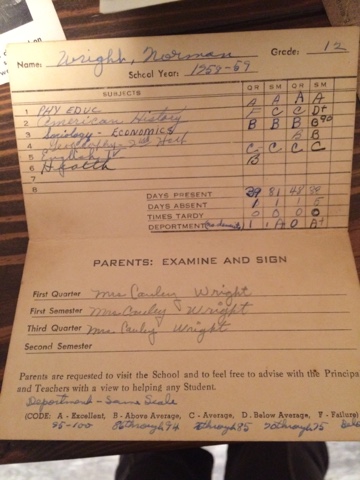 Name: Wright, Norman Grade: 12
School Year: 1958-59
SUBJECTS QR SM QR SM
1 PHY EDUC A A A A
2 American History F C C D+
3 Sociology - ECONOMICS B B B B 90
4 2nd Half B B
5 English C C C C
6 Health B
7
8
DAYS PRESENT 39 81 48 88
DAYS ABSENT 1 1 1 5
TIMES TARDY 0 0 0 0
DEPORTMENT
PARENTS: EXAMINE AND SIGN
First Quarter Mrs Cauley Wright
First Semester Mrs Cauley Wright
Third Quarter Mrs Cauley Wright
Second Semester
Parents are requested to visit the School and to feel free to advise with the Principa
and Teachers with a view to helping any Student.
Deportment - Same Scale
(CODE: A - Excellent, B - Above Average, C - Average, D - Below Average, F - Failure)
95-100 86 through 94 76 through 85 70 through 75